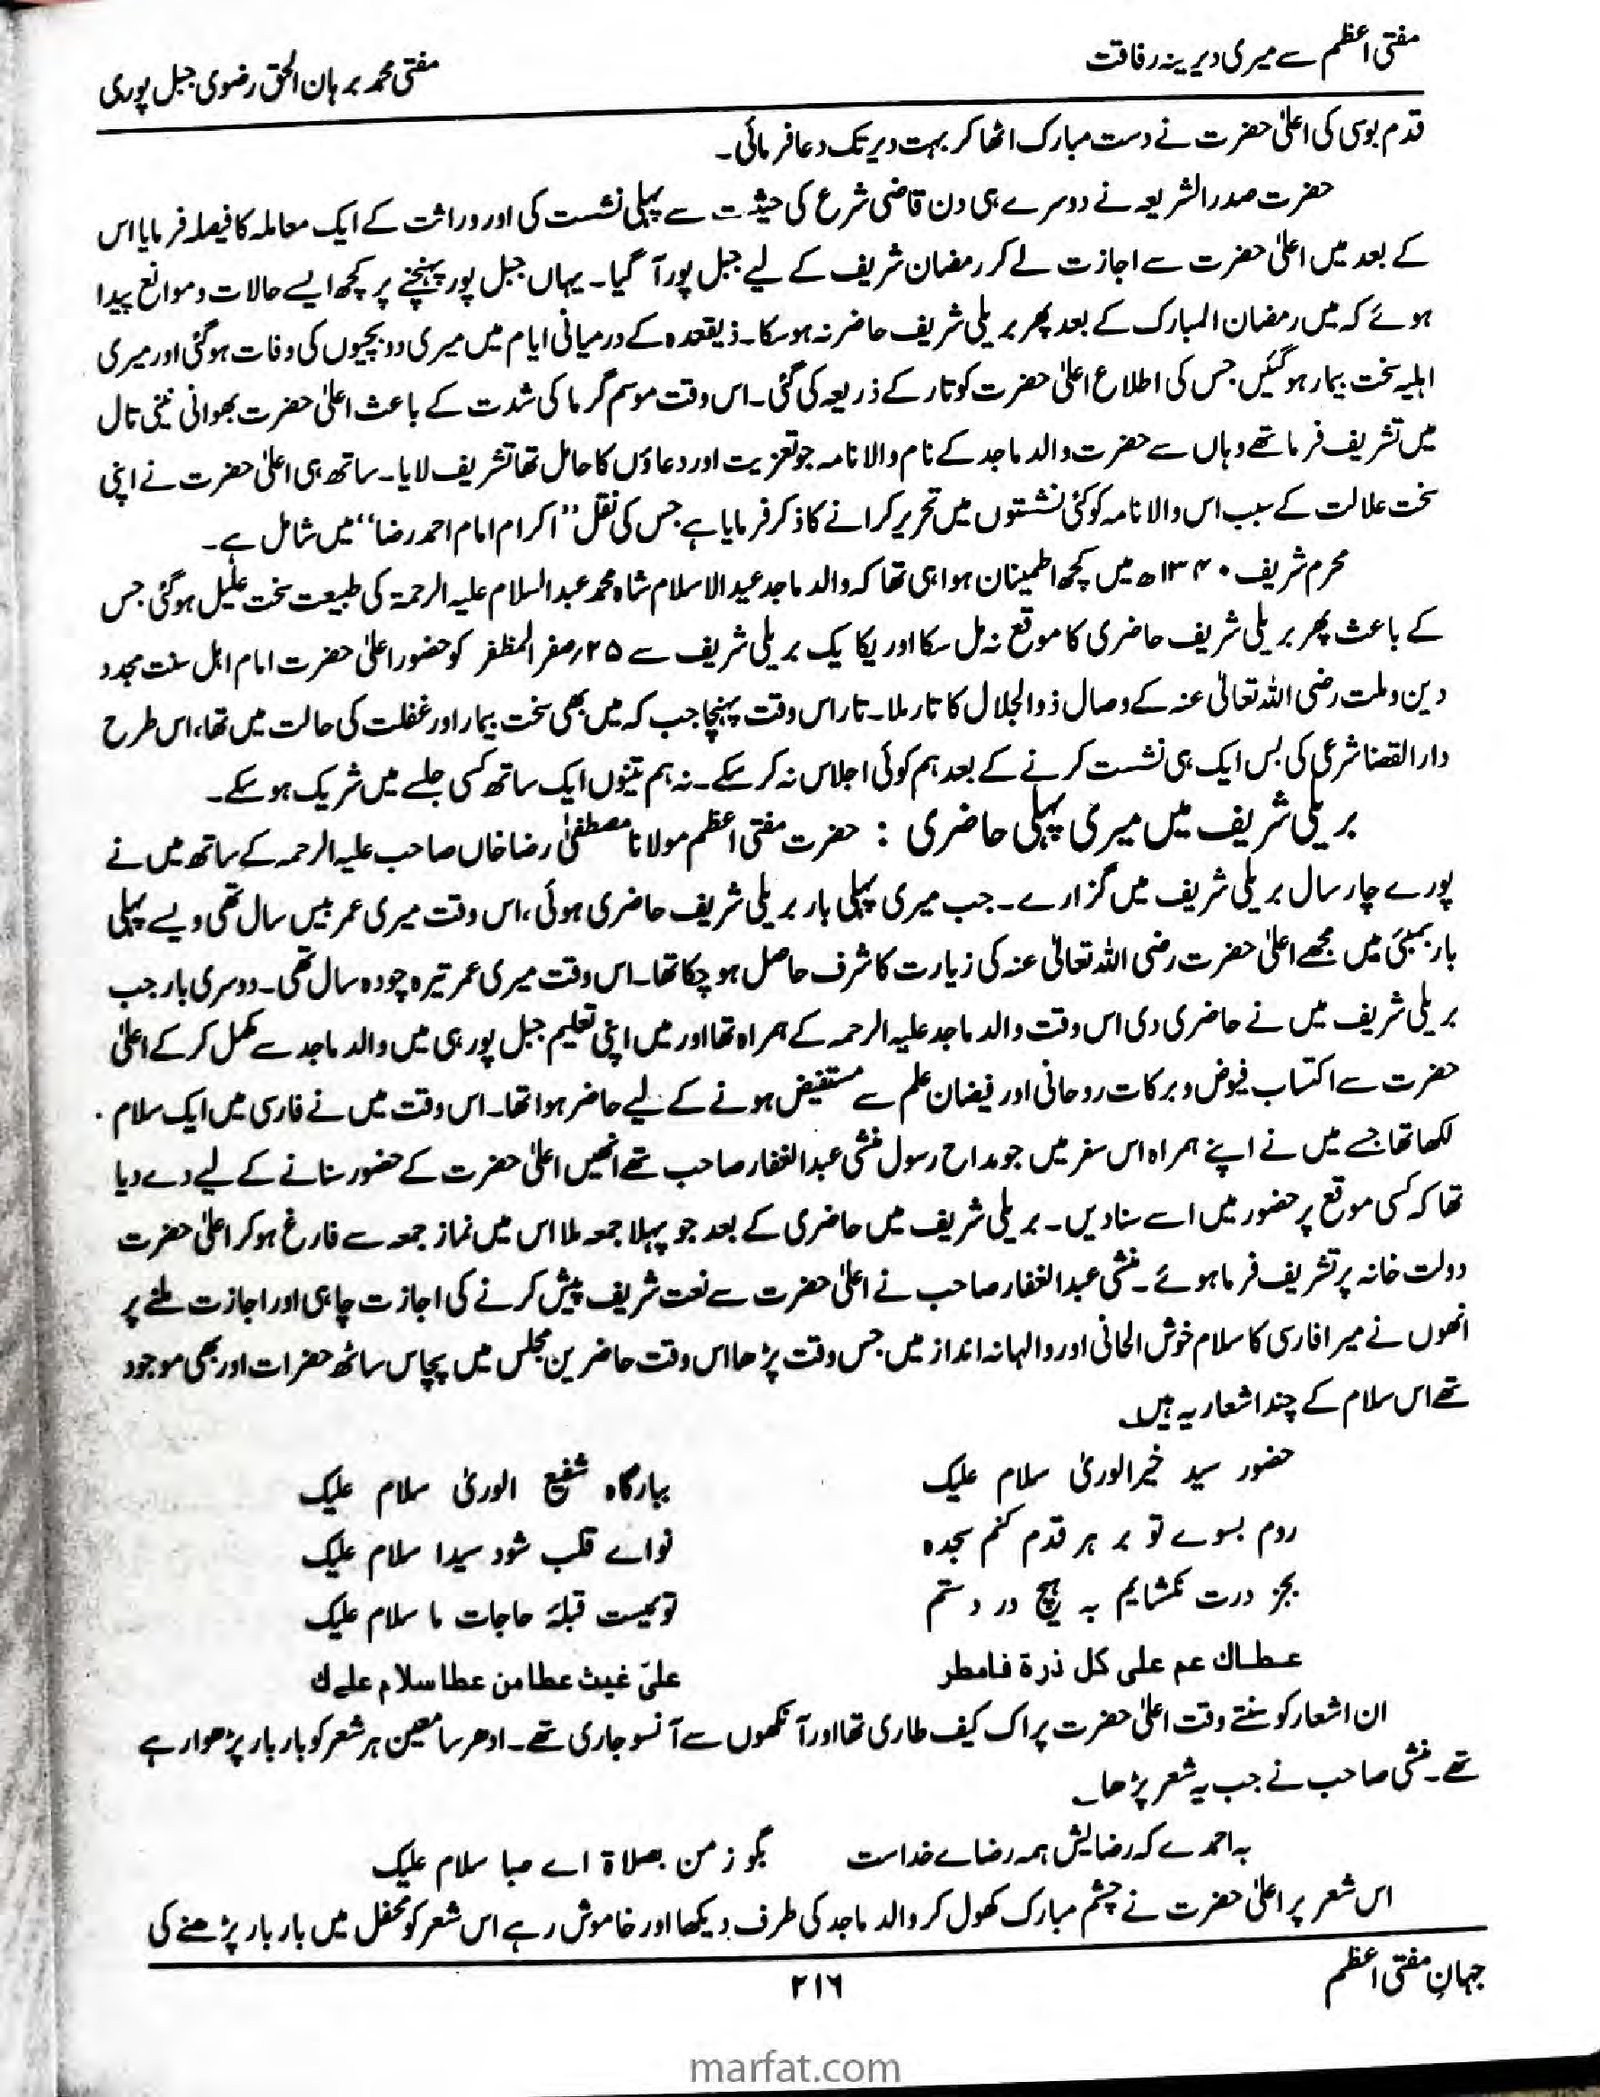 مفتی اعظم سے میری دیرینہ رفاقت
مفتی محمد برہان الحق رضوی جبل پوری
قدم بوسی کی اعلیٰ حضرت نے دست مبارک اٹھا کر بہت دیر تک دعا فرمائی۔
حضرت صدر الشریعہ نے دوسرے ہی دن قاضی شرع کی حیثیت سے پہلی نشست کی اور وراثت کے ایک معاملہ کا فیصلہ فرمایا اس
کے بعد میں اعلیٰ حضرت سے اجازت لے کر رمضان شریف کے لیے جبل پور آ گیا۔ یہاں جبل پور پہنچنے پر کچھ ایسے حالات و موانع پیدا
ہوئے کہ میں رمضان المبارک کے بعد پھر بریلی شریف حاضر نہ ہوسکا۔ ذیقعدہ کے درمیانی ایام میں میری دو بچیوں کی وفات ہوگئی اور میری
اہلیہ سخت بیمار ہوگئیں جس کی اطلاع اعلیٰ حضرت کو تار کے ذریعہ کی گئی۔ اس وقت موسم گرما کی شدت کے باعث اعلیٰ حضرت بھوانی نینی تال
میں تشریف فرما تھے وہاں سے حضرت والد ماجد کے نام والا نامہ جو تعزیت اور دعاؤں کا حامل تھا تشریف لایا۔ ساتھ ہی اعلیٰ حضرت نے اپنی
سخت علالت کے سبب اس والا نامہ کو کئی نشستوں میں تحریر کرانے کا ذکر فرمایا ہے جس کی نقل ”اکرام امام احمد رضا“ میں شامل ہے۔
محرم شریف ۱۳۴۰ھ میں کچھ اطمینان ہوا ہی تھا کہ والد ماجد عید الاسلام شاہ محمد عبد السلام علیہ الرحمۃ کی طبیعت سخت علیل ہوگئی جس
کے باعث پھر بریلی شریف حاضری کا موقع نہ مل سکا اور یکایک بریلی شریف سے ۲۵؍صفر المظفر کو حضور اعلیٰ حضرت امام اہل سنت مجدد
دین و ملت رضی اللہ تعالیٰ عنہ کے وصال ذوالجلال کا تار ملا۔ تار اس وقت پہنچا جب کہ میں بھی سخت بیمار اور غفلت کی حالت میں تھا، اس طرح
دار القضا شرعی کی بس ایک ہی نشست کرنے کے بعد ہم کوئی اجلاس نہ کر سکے۔ نہ ہم تینوں ایک ساتھ کسی جلسے میں شریک ہو سکے۔
بریلی شریف میں میری پہلی حاضری : حضرت مفتی اعظم مولانا مصطفیٰ رضا خاں صاحب علیہ الرحمہ کے ساتھ میں نے
پورے چار سال بریلی شریف میں گزارے۔ جب میری پہلی بار بریلی شریف حاضری ہوئی، اس وقت میری عمر بیس سال تھی ویسے پہلی
بار بمبئی میں مجھے اعلیٰ حضرت رضی اللہ تعالیٰ عنہ کی زیارت کا شرف حاصل ہو چکا تھا۔ اس وقت میری عمر تیرہ چودہ سال تھی۔ دوسری بار جب
بریلی شریف میں نے حاضری دی اس وقت والد ماجد علیہ الرحمہ کے ہمراہ تھا اور میں اپنی تعلیم جبل پور ہی میں والد ماجد سے مکمل کرکے اعلیٰ
حضرت سے اکتساب فیوض و برکات روحانی اور فیضان علم سے مستفیض ہونے کے لیے حاضر ہوا تھا۔ اس وقت میں نے فارسی میں ایک سلام
لکھا تھا جسے میں نے اپنے ہمراہ اس سفر میں جو مداح رسول منشی عبد الغفار صاحب تھے انھیں اعلیٰ حضرت کے حضور سنانے کے لیے دے دیا
تھا کہ کسی موقع پر حضور میں اسے سنا دیں۔ بریلی شریف میں حاضری کے بعد جو پہلا جمعہ ملا اس میں نماز جمعہ سے فارغ ہو کر اعلیٰ حضرت
دولت خانہ پر تشریف فرما ہوئے۔ منشی عبد الغفار صاحب نے اعلیٰ حضرت سے نعت شریف پیش کرنے کی اجازت چاہی اور اجازت ملنے پر
انھوں نے میرا فارسی کا سلام خوش الحانی اور والہانہ انداز میں جس وقت پڑھا اس وقت حاضرین مجلس میں پچاس ساٹھ حضرات اور بھی موجود
تھے اس سلام کے چند اشعار یہ ہیں۔
حضور سید خیر الوریٰ سلام علیک ببارگاہ شفیع الوریٰ سلام علیک
روم بسوے تو بر ہر قدم کنم سجدہ نواے قلب شود سیدا سلام علیک
بجز درت نکشایم بہ ہیچ در دستم توئیست قبلۂ حاجات ما سلام علیک
عطاك عم علی كل ذرة فامطر علیّ غیث عطا من عطا سلام علیك
ان اشعار کو سنتے وقت اعلیٰ حضرت پر اک کیف طاری تھا اور آنکھوں سے آنسو جاری تھے۔ ادھر سامعین ہر شعر کو بار بار پڑھوا رہے
تھے۔ منشی صاحب نے جب یہ شعر پڑھا۔
بہ احمدے کہ رضایش ہمہ رضاے خداست بگو ز من بصلاۃ اے صبا سلام علیک
اس شعر پر اعلیٰ حضرت نے چشم مبارک کھول کر والد ماجد کی طرف دیکھا اور خاموش رہے اس شعر کو محفل میں بار بار پڑھنے کی
جہانِ مفتی اعظم
۲۱۶
marfat.com